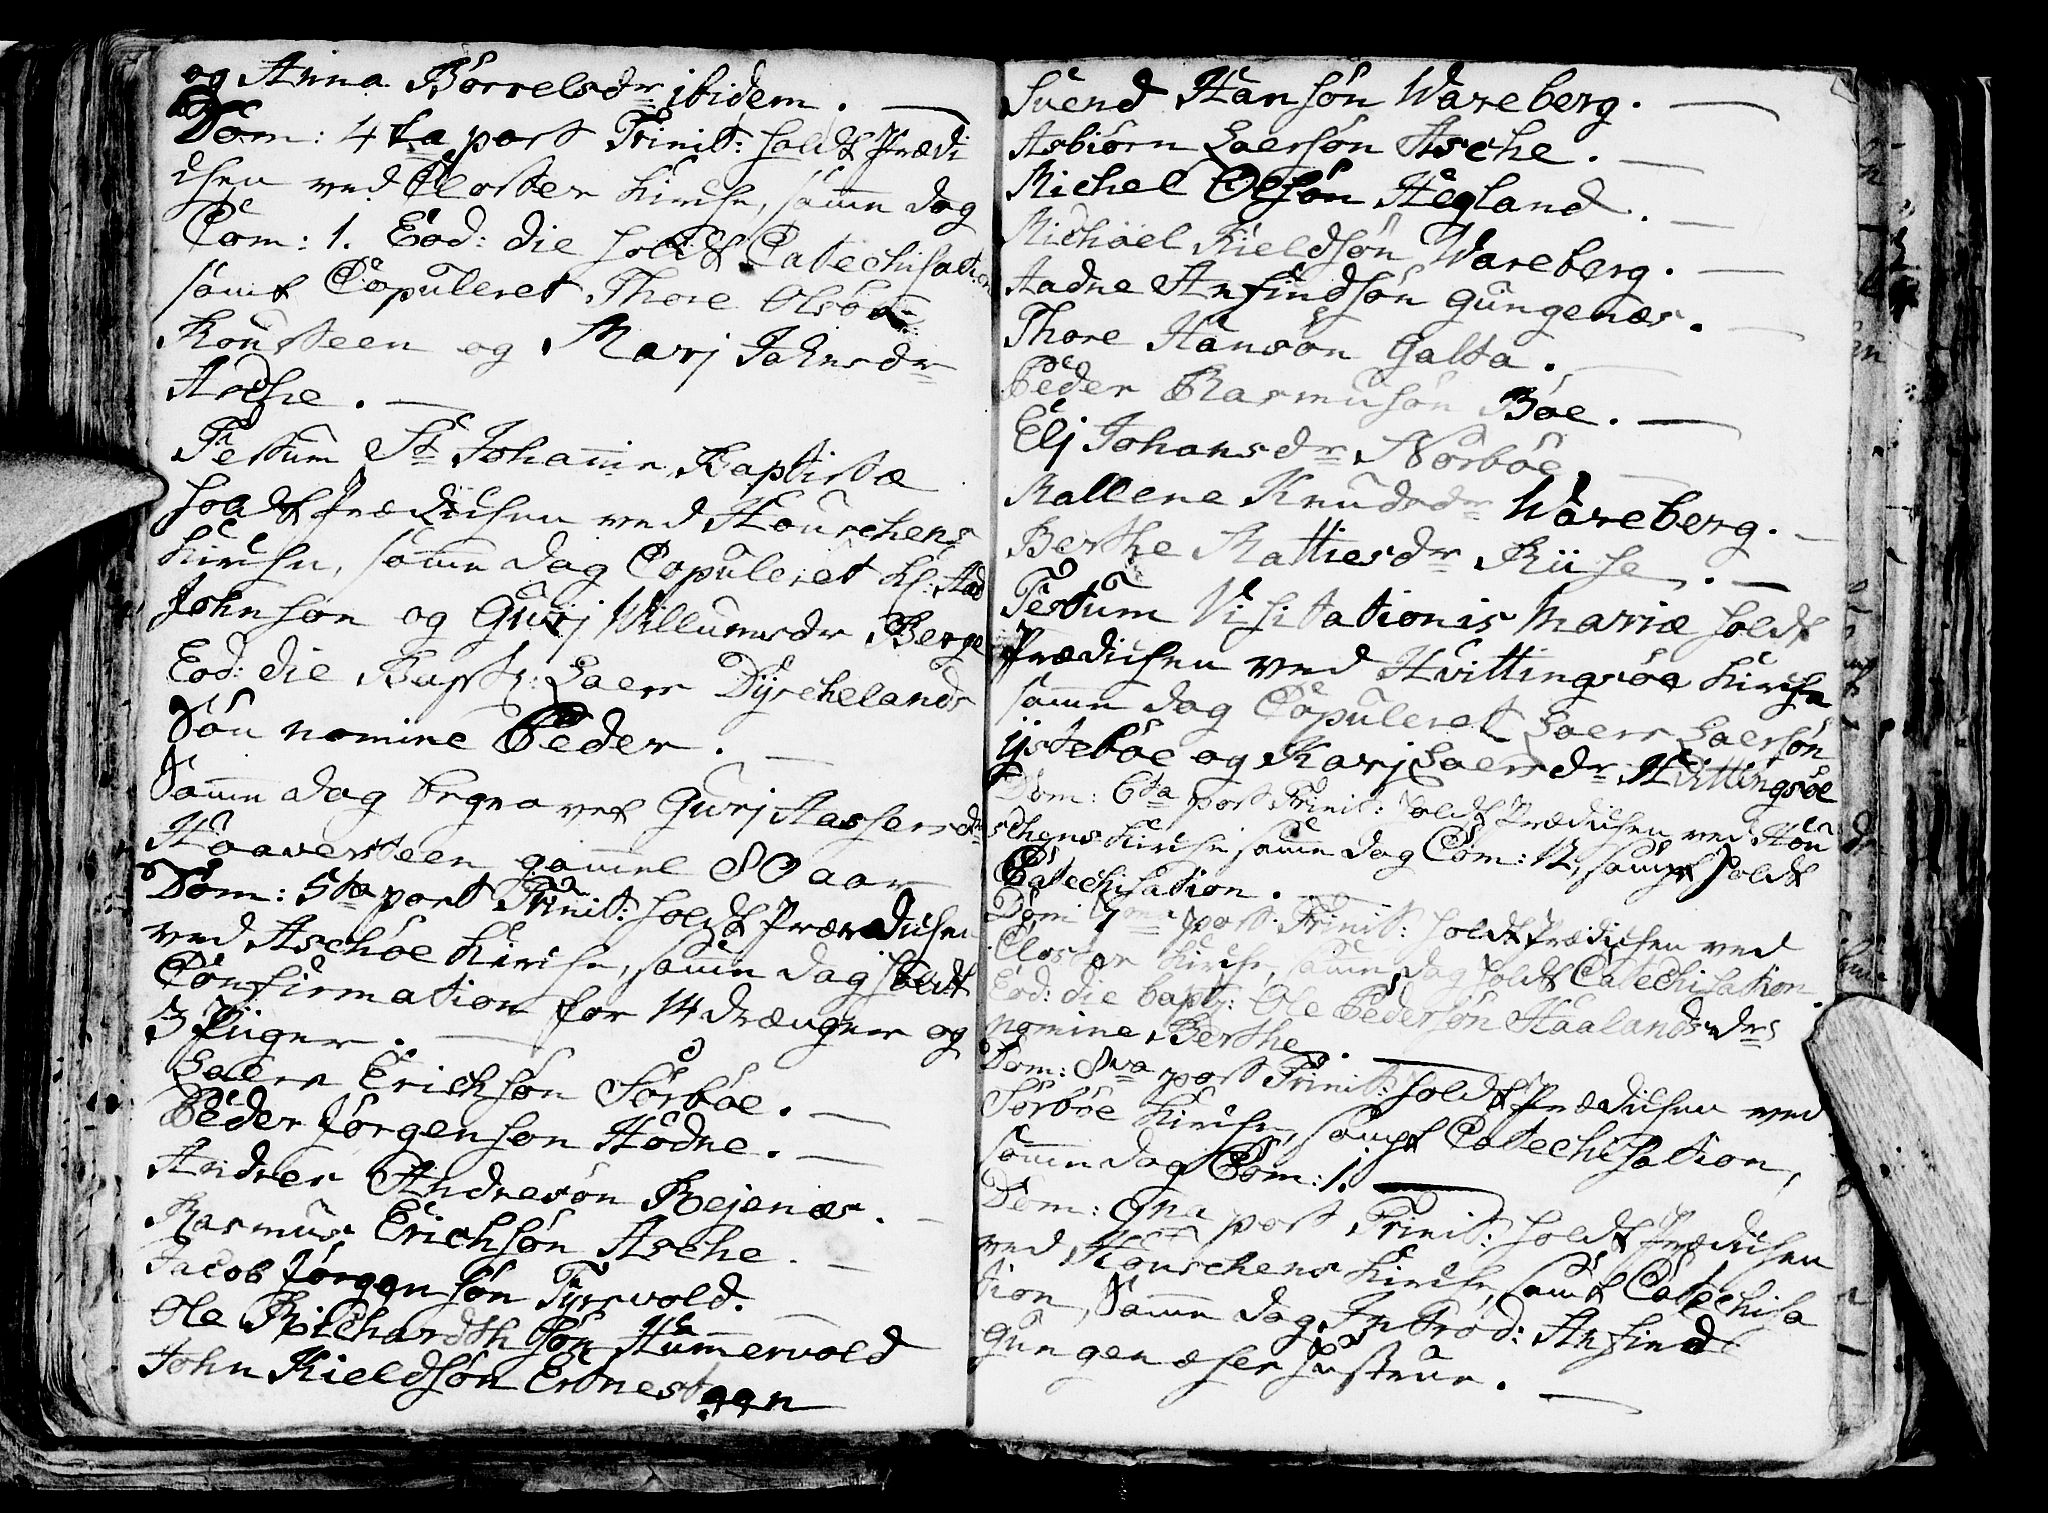 og Anna Börrelsdr ibidem.
Dom: 4ta post Trinit: holdt Prædi
chen ved Closter Kirche, samme dag
Com: 1. Eod: die holdt Catechisation
samt Copuleret Thore Olsön
Rousteen og Marj Johnsdr
Asche.
Festum St Johannis Baptistæ
holdt Prædichen ved Houschens
Kirche, samme dag Copuleret
Johnson og Gurj Willumsdr Berge
Eod: die Bapt: Laers Dÿschelands
Sön nomine Peder.
Samme dag begravet Gurj Aassersdr
Haaversteen gammel 80 aar
Dom: 5ta post Trinit: holdt Prædichen
ved Aschöe Kirche, samme dag holdt
Confirmation for 14 drænger og
3 Piiger.
Laers Erichsön Sörböe.
Peder Jörgenson Hodne.
Andres Andresön Rejenæs.
Rasmus Erichsön Asche.
Jacob Jörgensön Tÿsvold.
Ole Richardthsön Hummervold
John Kieldsön Erbnesteen
Svend Hansön Wareberg.
Asbiörn Laersön Asche.
Michel Olsön Hegland.
Michael Kieldsön Wareberg.
Aadne Anfindsön Gungenæs.
Thore Hansön Galta.
Peder Rasmusön Böe.
Elj Johansdr Norböe.
Mallene Knudsdr Wareberg.
Berthe Mattiesdr Riise.
Festum Visitationis Mariæ holdt
Prædichen ved Hvittingsöe Kirche
samme dag Copuleret Laers Laersön
ÿsteböe og Karj Laersdr Hvittingsöe
Dom: 6ta post Trinit: holdt Prædichen ved Hou
schens Kirche samme dag Com: 12, sampt holdt
Catechisation.
Dom: 7ma post Trinit: holdt Prædichen ved
Closter Kirche, samme dag holdt Catechisation.
Eod: die bapt: Ole Pedersön Haalands dr
nomine Berthe.
Dom: 8va post Trinit: holdt Prædichen ved
Sörböe Kirche, sampt Catechisation,
samme dag Com: 1.
Dom: 9na post Trinit: holdt Prædichen
ved Houschens Kirche, samt Catechisa
tion, Samme dag Introd: Anfind
Gungenæses hustrue.